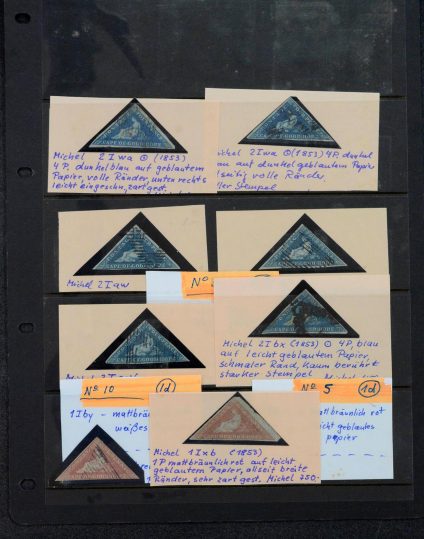 Michel 2Iwa ⊙ (1853)
4 P, dunkelblau auf geblautem
Papier, volle Ränder, unten rechts
leicht eingeschn., zart gest.
2Iwa ⊙ (1853) 4P, dunkel
au auf dunkelgeblautem Papier
lseitig volle Ränder
Stempel
Michel 2Iaw
No
Michel 2Ibx (1853) ⊙ 4P, blau
auf leicht geblautem Papier,
schmaler Rand, kaum berührt
starker Stempel
No 10 1d
1Iby - mattbräun
weißes
No 5 1d
mattbräunlich rot
leicht geblautes
papier
Michel 1Ixb (1853)
1P mattbräunlichrot auf leicht
geblautem Papier, allseit breite
Ränder, sehr zart gest. Michel 750.-
CAPE OF GOOD HOPE